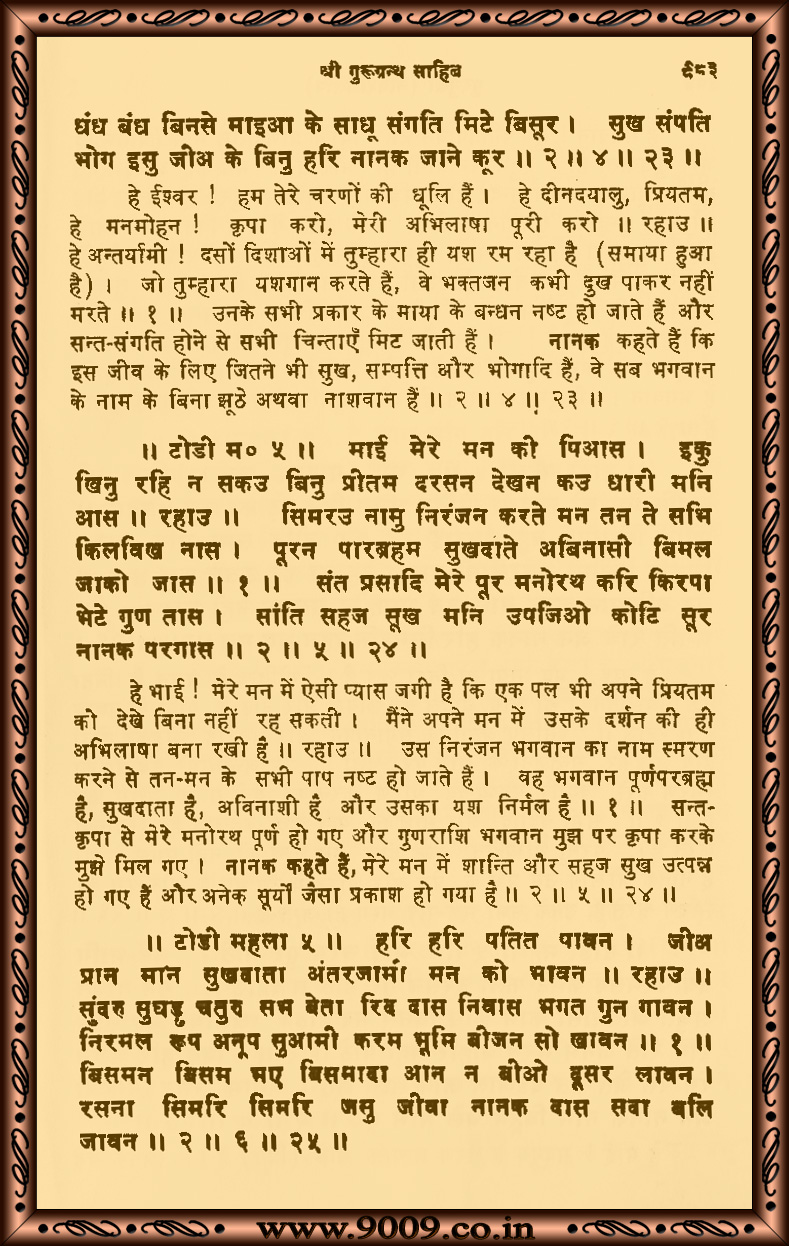 श्री गुरूग्रन्थ साहिब ९८३
धंध बंध बिनसे माइआ के साधू संगति मिटे बिसूर । सुख संपति
भोग इसु जीअ के बिनु हरि नानक जाने कूर ॥ २ ॥ ४ ॥ २३ ॥
हे ईश्वर ! हम तेरे चरणों की धूलि हैं । हे दीनदयालु, प्रियतम,
हे मनमोहन ! कृपा करो, मेरी अभिलाषा पूरी करो ॥ रहाउ ॥
हे अन्तर्यामी ! दसों दिशाओं में तुम्हारा ही यश रम रहा है (समाया हुआ
है) । जो तुम्हारा यशगान करते हैं, वे भक्तजन कभी दुख पाकर नहीं
मरते ॥ १ ॥ उनके सभी प्रकार के माया के बन्धन नष्ट हो जाते हैं और
सन्त-संगति होने से सभी चिन्ताएँ मिट जाती हैं । नानक कहते हैं कि
इस जीव के लिए जितने भी सुख, सम्पत्ति और भोगादि हैं, वे सब भगवान
के नाम के बिना झूठे अथवा नाशवान हैं ॥ २ ॥ ४ ॥ २३ ॥
॥ टोडी म० ५ ॥ माई मेरे मन की पिआस । इकु
खिनु रहि न सकउ बिनु प्रीतम दरसन देखन कउ धारी मनि
आस ॥ रहाउ ॥ सिमरउ नामु निरंजन करते मन तन ते सभि
किलविख नास । पूरन पारब्रहम सुखदाते अबिनासी बिमल
जाको जास ॥ १ ॥ संत प्रसादि मेरे पूर मनोरथ करि किरपा
भेटे गुण तास । सांति सहज सूख मनि उपजिओ कोटि सूर
नानक परगास ॥ २ ॥ ५ ॥ २४ ॥
हे भाई ! मेरे मन में ऐसी प्यास जगी है कि एक पल भी अपने प्रियतम
को देखे बिना नहीं रह सकती । मैंने अपने मन में उसके दर्शन की ही
अभिलाषा बना रखी है ॥ रहाउ ॥ उस निरंजन भगवान का नाम स्मरण
करने से तन-मन के सभी पाप नष्ट हो जाते हैं । वह भगवान पूर्णपरब्रह्म
है, सुखदाता है, अविनाशी है और उसका यश निर्मल है ॥ १ ॥ सन्त-
कृपा से मेरे मनोरथ पूर्ण हो गए और गुणराशि भगवान मुझ पर कृपा करके
मुझे मिल गए । नानक कहते हैं, मेरे मन में शान्ति और सहज सुख उत्पन्न
हो गए हैं और अनेक सूर्यों जैसा प्रकाश हो गया है ॥ २ ॥ ५ ॥ २४ ॥
॥ टोडी महला ५ ॥ हरि हरि पतित पावन । जीअ
प्रान मान सुखदाता अंतरजामी मन को भावन ॥ रहाउ ॥
सुंदरु सुघड़ु चतुरु सभ बेता रिद दास निवास भगत गुन गावन ।
निरमल रूप अनूप सुआमी करम भूमि बीजन सो खावन ॥ १ ॥
बिसमन बिसम भए बिसमादा आन न बीओ दूसर लावन ।
रसना सिमरि सिमरि जसु जीवा नानक दास सदा बलि
जावन ॥ २ ॥ ६ ॥ २५ ॥
www.9009.co.in